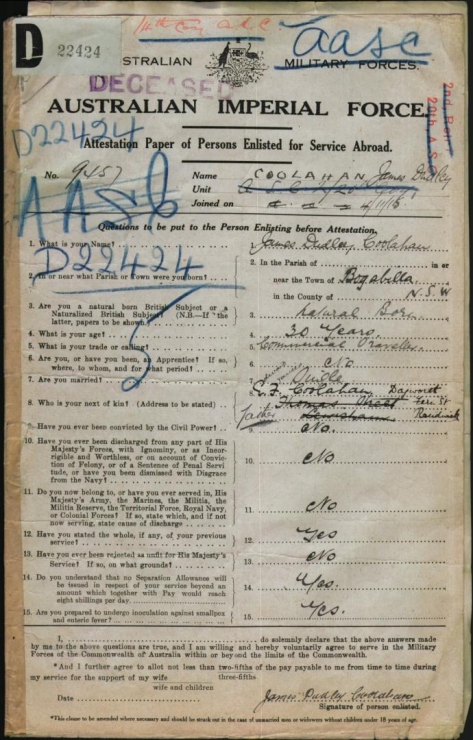 D 22424
14th Coy A.S.C.
AASC
AUSTRALIAN MILITARY FORCES.
DECEASED
AUSTRALIAN IMPERIAL FORCE.
D22424
Attestation Paper of Persons Enlisted for Service Abroad.
No. 9457 Name COOLAHAN James Dudley
Unit A.S.C.
Joined on 4/11/15
AASC
Questions to be put to the Person Enlisting before Attestation.
1. What is your Name? 1. James Dudley Coolahan
D22424
2. In or near what Parish or Town were you born? 2. In the Parish of in or
near the Town of Begabella
in the County of N.S.W
3. Are you a natural born British Subject or a
Naturalized British Subject? (N.B.—If the
latter, papers to be shown) 3. Natural Born
4. What is your age? 4. 30 Years.
5. What is your trade or calling? 5. Commercial Traveller
6. Are you, or have you been, an Apprentice? If so,
where, to whom, and for what period? 6. No
7. Are you married? 7. Single
8. Who is your next of kin? (Address to be stated) 8. Coolahan
Thomas Street
father Lewisham Randwick
9. Have you ever been convicted by the Civil Power? 9. No.
10. Have you ever been discharged from any part of His
Majesty's Forces, with Ignominy, or as Incor-
rigible and Worthless, or on account of Convic-
tion of Felony, or of a Sentence of Penal Servi-
tude, or have you been dismissed with Disgrace
from the Navy? 10. No
11. Do you now belong to, or have you ever served in, His
Majesty's Army, the Marines, the Militia, the
Militia Reserve, the Territorial Force, Royal Navy,
or Colonial Forces? If so, state which, and if not
now serving, state cause of discharge 11. No
12. Have you stated the whole, if any, of your previous
service? 12. Yes
13. Have you ever been rejected as unfit for His Majesty's
Service? If so, on what grounds? 13. No
14. Do you understand that no Separation Allowance will
be issued in respect of your service beyond an
amount which together with Pay would reach
eight shillings per day. 14. Yes.
15. Are you prepared to undergo inoculation against smallpox
and enteric fever? 15. Yes.
I, do solemnly declare that the above answers made
by me to the above questions are true, and I am willing and hereby voluntarily agree to serve in the Military
Forces of the Commonwealth of Australia within or beyond the limits of the Commonwealth.
*And I further agree to allot not less than two-fifths of the pay payable to me from time to time during
three-fifths
my service for the support of my wife
wife and children
Date James Dudley Coolahan
Signature of person enlisted.
*This clause to be amended where necessary and should be struck out in the case of unmarried men or widowers without children under 18 years of age.